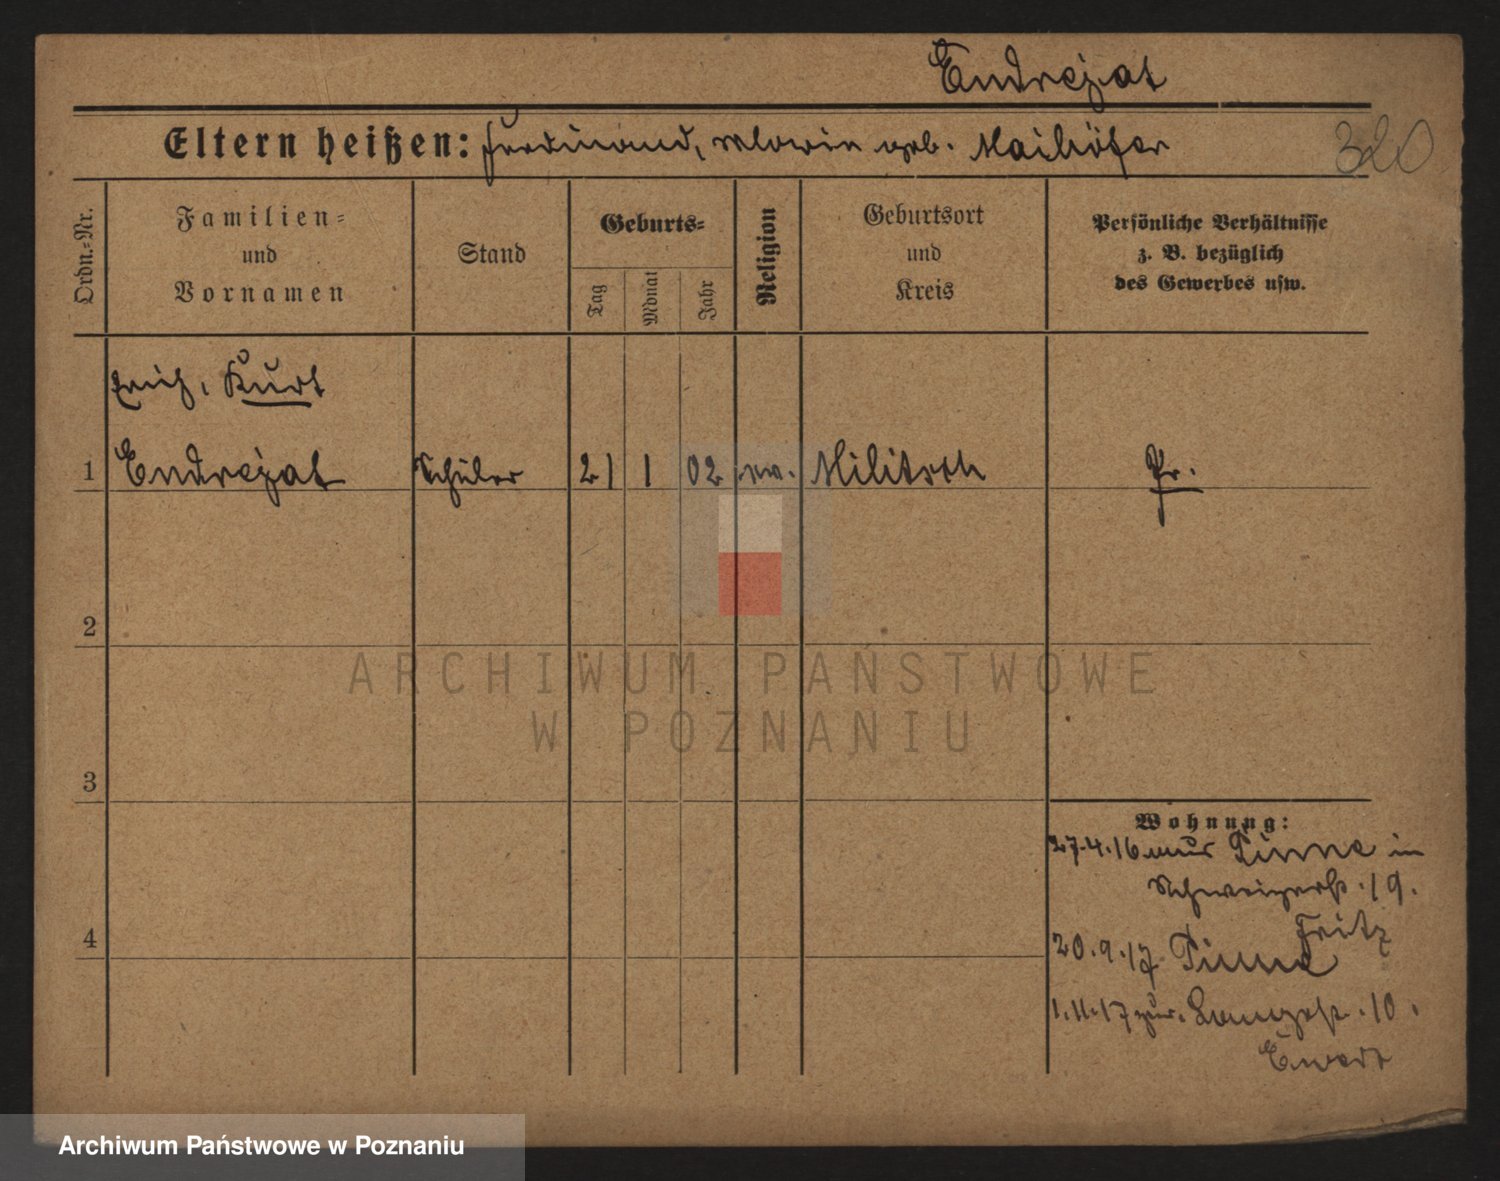 Endrejat
Eltern heißen: Ferdinand, Maria geb. Maihöfer
320
Ordn.=Nr.
Familien= und Vornamen
Stand
Geburts=
Tag
Monat
Jahr
Religion
Geburtsort und Kreis
Persönliche Verhältnisse z. B. bezüglich des Gewerbes usw.
Erich, Kurt
1 Endrejat Schüler 21 1 02 ev. Militsch Pr.
2
3
4
Wohnung:
27.4.16 aus Pinne in
Schweizerstr. 19.
Fritz
20.9.17 Pinne
1.11.17 zur. Langestr. 10.
Ewert
ARCHIWUM PAŃSTWOWE
W POZNANIU
Archiwum Państwowe w Poznaniu